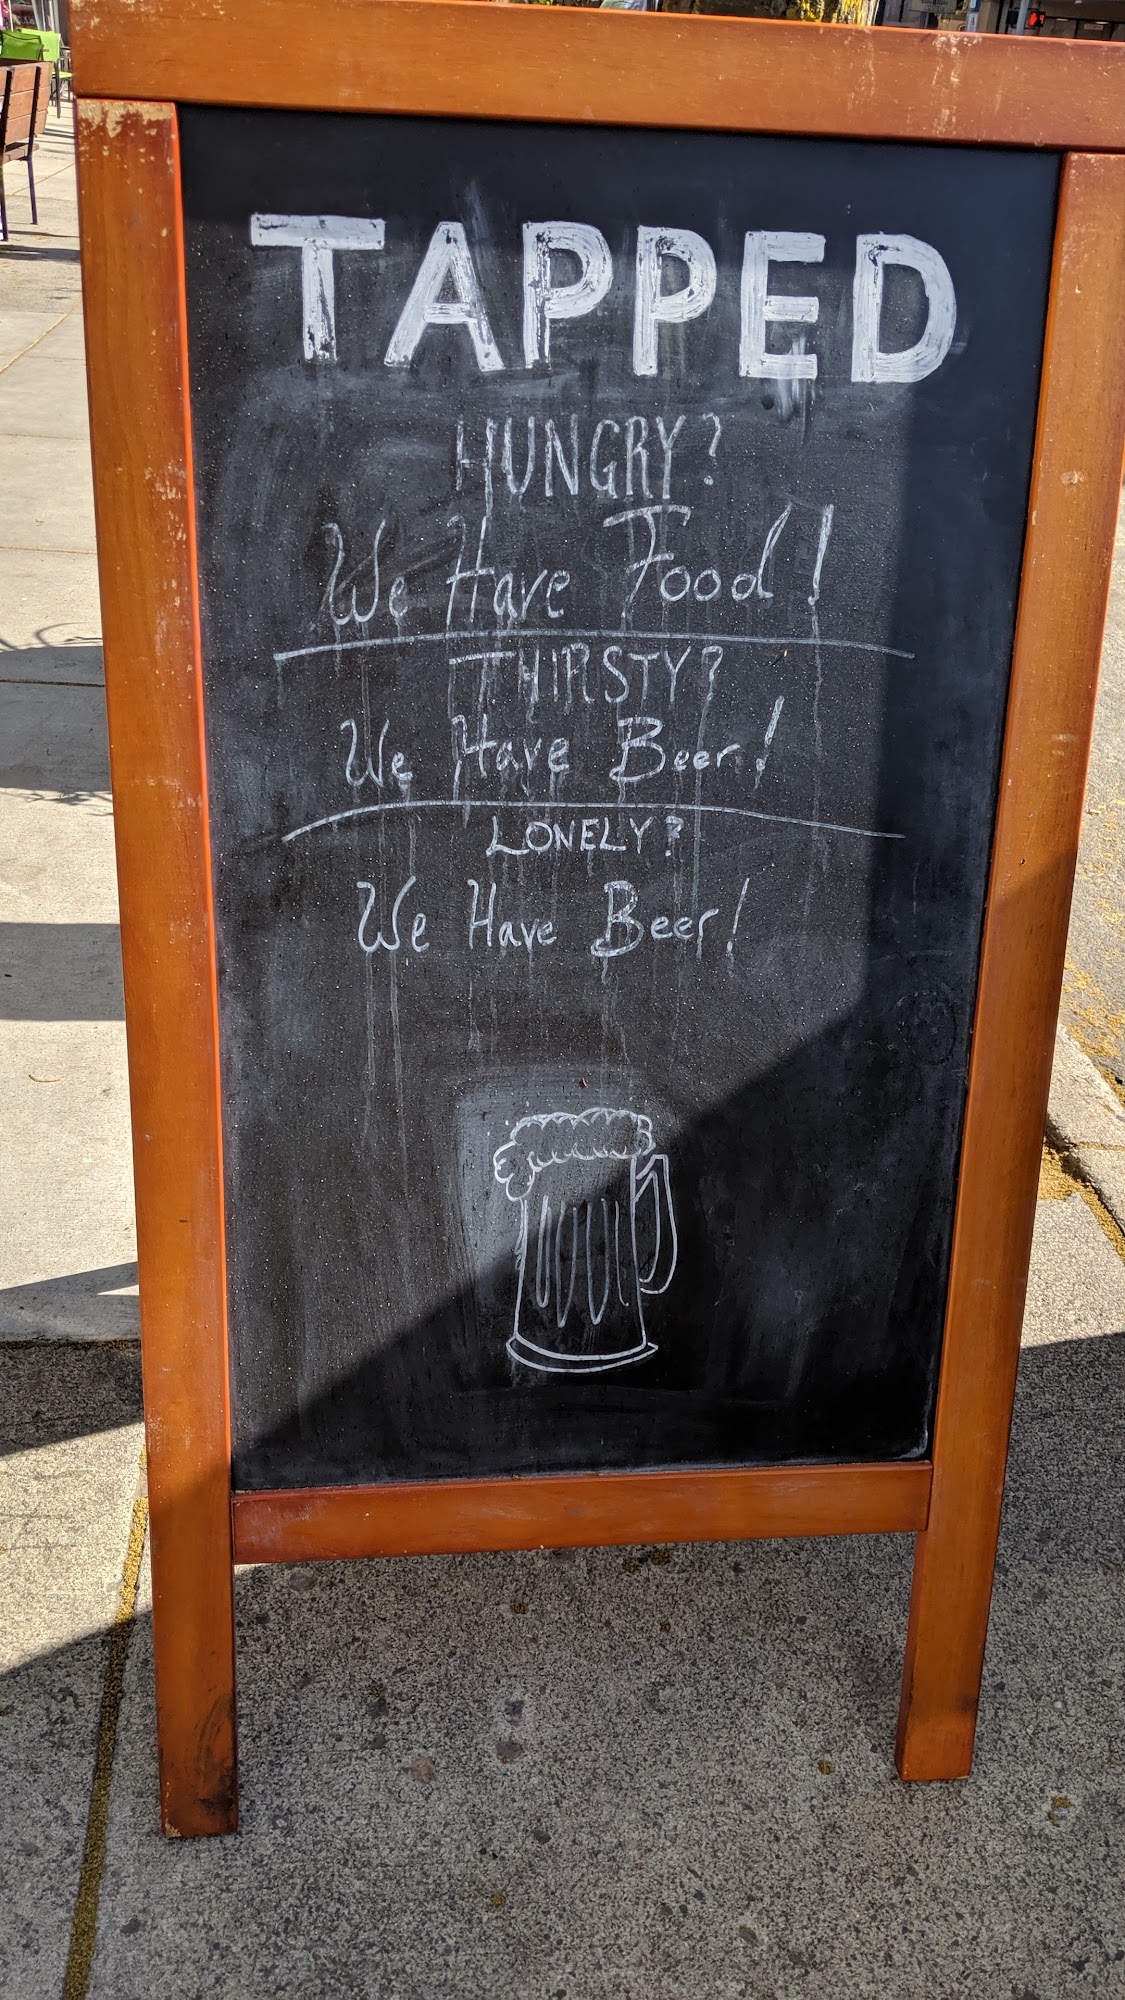 TAPPED
HUNGRY?
We Have Food!
THIRSTY?
We Have Beer!
LONELY?
We Have Beer!